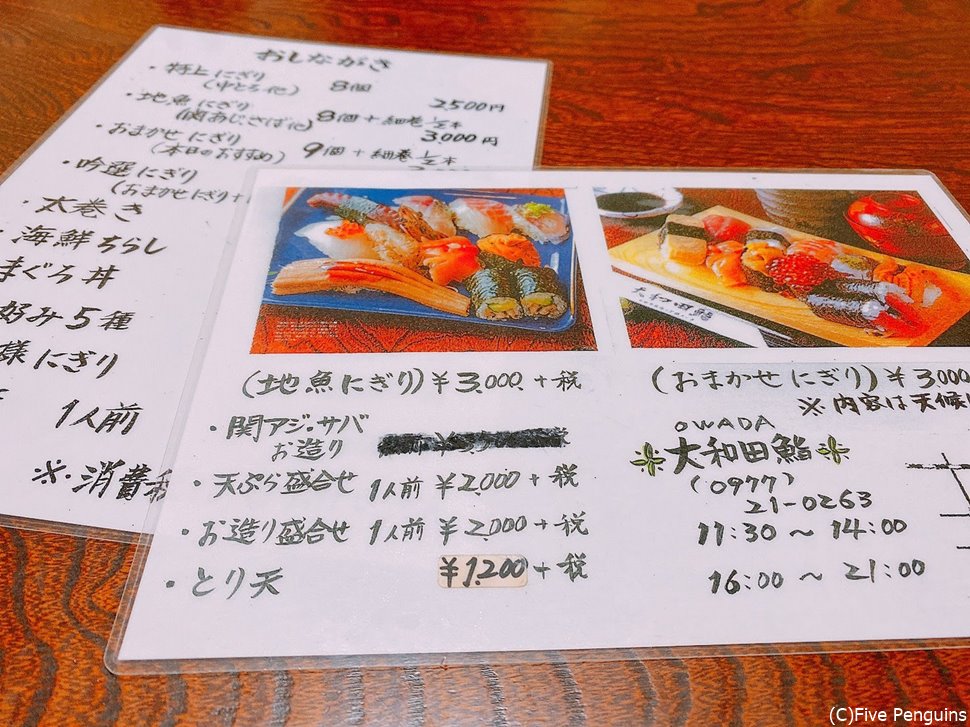 おしながき
・特上にぎり 8個
(中とろ他) 2500円
・地魚にぎり 8個+細巻1/2本
(関あじさば他) 3,000円
・おまかせにぎり 9個+細巻1/2本
(本日のおすすめ)
・吟選にぎり
(おまかせにぎり+
・太巻き
・海鮮ちらし
まぐろ丼
好み5種
様にぎり
1人前
※消費税
大和田鮨
(地魚にぎり)¥3,000+税
・関アジ・サバ
お造り
・天ぷら盛合せ 1人前 ¥2,000+税
・お造り盛合せ 1人前 ¥2,000+税
・とり天 ¥1,200+税
(おまかせにぎり)¥3,000
※内容は天候
OWADA
大和田鮨
(0977)
21-0263
11:30～14:00
16:00～21:00
(C)Five Penguins